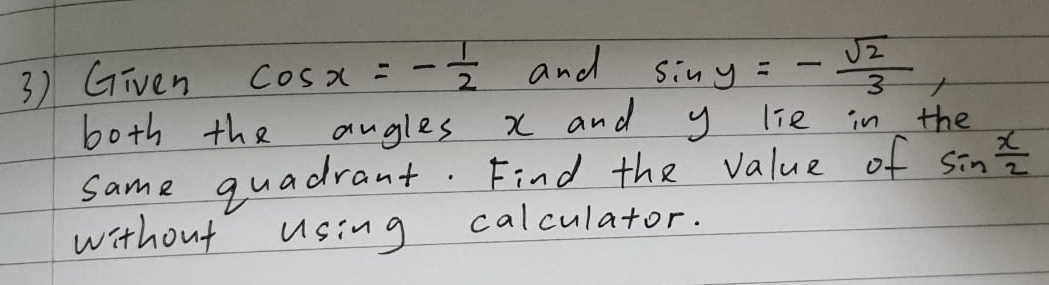 3) Given cos x = - 1/2 and sin y = - √2/3 ,
both the angles x and y lie in the
same quadrant . Find the value of sin x/2
without using calculator.